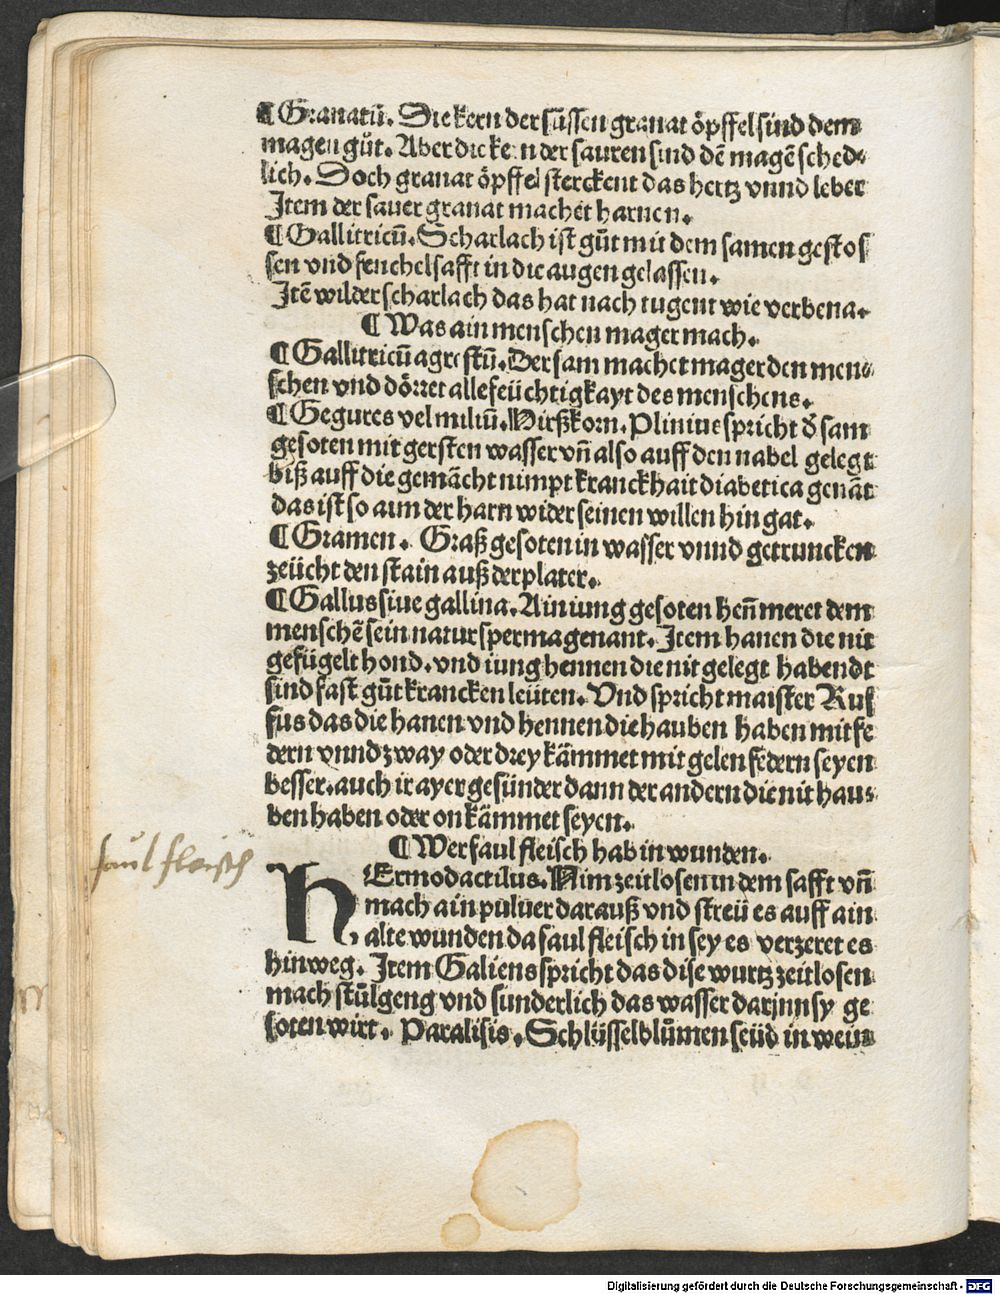 ¶ Granatū. Die kern der süssen granat öpffel sind dem
magen gůt. Aber die kern der sauren sind dē magē sched⸗
lich. Doch granat öpffel sterckent das hertz vnnd leber
Item der sauer granat machet harnen.
¶ Gallitricū. Scharlach ist gůt mit dem samen gestos
sen vnd fenchelsafft in die augen gelassen.
Itē wilder scharlach das hat nach tugent wie verbena.
¶ Was ain menschen mager mach.
¶ Gallitricū agrestū. Der sam machet mager den men⸗
schen vnd dörret alle feüchtigkayt des menschens.
¶ Gegures vel miliū. Hirßkorn. Plinius spricht d̄ sam
gesoten mit gersten wasser vn̄ also auff den nabel gelegt
biß auff die gemächt nimpt kranckhait diabetica genāt
das ist so aim der harn wider seinen willen hin gat.
¶ Gramen. Graß gesoten in wasser vnnd getruncken
zeücht den stain auß der plater.
¶ Gallus siue gallina. Ain iung gesoten hen̄ meret dem
menschē sein natur sperma genant. Item hanen die nit
gefügelt hond. vnd iung hennen die nit gelegt habendt
sind fast gůt krancken leüten. Vnd spricht maister Ruf
fus das die hanen vnd hennen die hauben haben mit fe
dern vnnd zway oder drey kämmet mit gelen federn seyen
besser. auch ir ayer gesünder dann der andern die nit hau⸗
ben haben oder on kämmet seyen.
¶ Wer faul fleisch hab in wunden.
faul fleisch
HErmodactilus. Nim zeitlosen in dem safft vn̄
mach ain puluer darauß vnd streü es auff ain
alte wunden da faul fleisch in sey es verzeret es
hinweg. Item Galiens spricht das dise wurtz zeitlosen
mach stůlgeng vnd sunderlich das wasser darjnn sy ge
soten wirt. Paralisis. Schlüsselblůmen seüd in wein
Digitalisierung gefördert durch die Deutsche Forschungsgemeinschaft - DFG